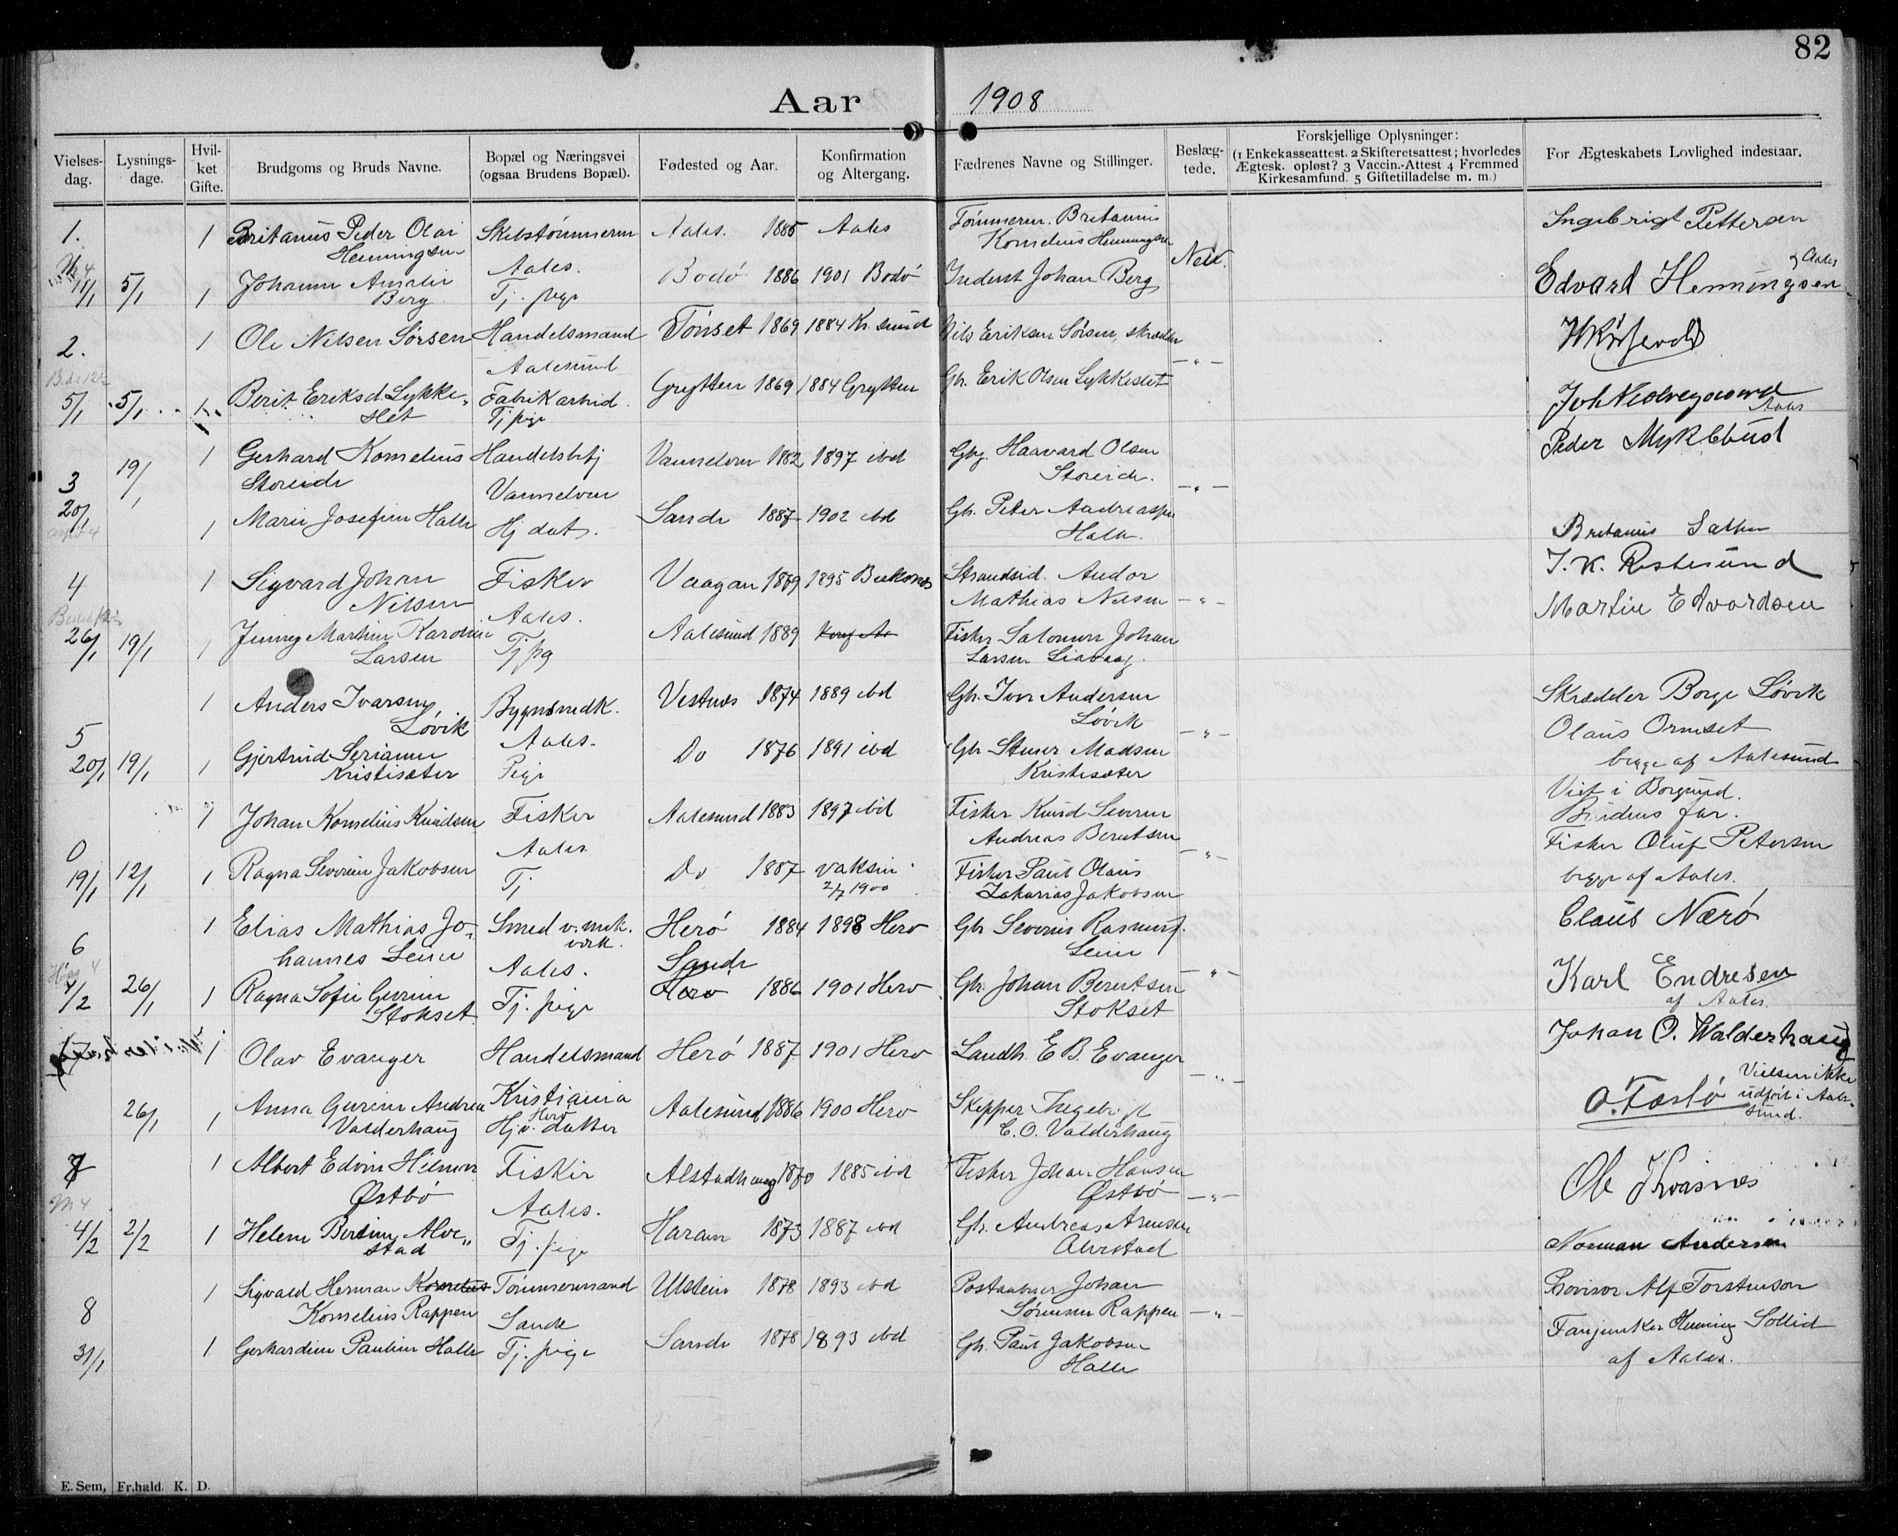 82
Aar 1908
Vielses-dag. Lysnings-dage. Hvil-ket Gifte. Brudgoms og Bruds Navne. Bopæl og Næringsvei (ogsaa Brudens Bopæl). Fødested og Aar. Konfirmation og Altergang. Fædrenes Navne og Stillinger. Beslæg-tede. Forskjellige Oplysninger: (1 Enkekasseattest. 2 Skifteretsattest; hvorledes Ægtesk. opløst? 3 Vaccin.-Attest 4 Fremmed Kirkesamfund. 5 Giftetilladelse m. m.) For Ægteskabets Lovlighed indestaar.
1. 1 Britanius Peder Olai Skibstømmerm Aales. 1885 Aales Tømmerm. Britanius Ingebrigt Pettersen
Henningsen Aales. Kornelius Henningsen Nei.
11/1 5/1 1 Johanne Amalie Tj. pige Bodø 1886 1901 Bodø Inderst Johan Berg Edvard Henningsen
Berg
2. 1 Ole Nilsen Sørsen Handelsmand Tønset 1869 1884 Kr. sund Nils Eriksen Sørsen, skrædder
Aalesund
5/1 5/1 1 Berit Eriksd. Lykke- Fabrikarbeid. Grytten 1869 1884 Grytten Gbr. Erik Olsen Lykkeslet
slet Tj pige Aales
3 19/1 1 Gerhard Kornelius Handelsbetj Vannelven 1882 1897 ibd Gbr. Haavard Olsen Peder Myklebust
Storeide Vannelven Storeide.
20/1 1 Marie Josefine Halle Hj dat. Sande 1887 1902 ibd Gbr. Peter Andreassen
Halle. Britanius Sætre
4 1 Sigvard Johan Fisker Vaagan 1879 1895 Strandsid. Andor J. K. Ristesund
Nilsen Aales. Mathias Nilsen Martin Edvardsen
26/1 19/1 1 Jenny Martine Karoline Tj pg Aalesund 1889 Fisker Salomon Johan
Larsen Larsen Liavaag.
5 1 Anders Ivarsen Bygnsnedk. Vestnes 1874 1889 ibd Gbr. Iver Andersen Skrædder Borge Løvik
Løvik Aales. Løvik Olaus Ormset
20/1 19/1 1 Gjertrud Serianne Pige Do 1876 1891 ibd Gbr. Steiner Madsen begge af Aalesund
Kristisæter Kristisæter
Viet i Borgund.
0 1 Johan Kornelius Knudsen Fisker Aalesund 1883 1897 ibd Fisker Knud Severin Brudens far.
Aales Andreas Berntsen Fisker Oluf Petersen
19/1 12/1 1 Ragna Severine Jakobsen Tj Do 1887 vaksin Fisker Paul Olaus begge af Aales.
2/7 1900 Zakarias Jakobsen
6 1 Elias Mathias Jo- Smed v. mek. Herø 1884 1898 Herø Gbr. Severin Rasmus. Claus Nærø
hannes Leine verk. Aales. Leine
1/2 26/1 1 Ragna Sofie Gurine Tj. pige Sande Herø 1886 1901 Herø Gbr. Johan Berntsen Karl Endresen
Stokset. Stokset af Aales.
1 Olav Evanger Handelsmand Herø 1887 1901 Herø Landh. E. B. Evanger Johan O. Walderhaug
Kristiania
26/1 1 Anna Gurine Andrea Herø Aalesund 1886 1900 Herø Skipper Ingebrigt Vielsen ikke
Valderhaug Hj. v. datter E. O. Valderhaug udført i Aale-sund.
7 1 Albert Edvin Hilmar Fisker Alstadhaug 1870 1885 ibd Fisker Johan Hansen Ole Kvasnes
Østbø Aales. Østbø
4/2 2/2 1 Helene Bertine Alve- Tj. pige Haram 1873 1887 ibd Gbr. Andreas Arnesen
stad Alvestad Norman Andersen
8 1 Sigvald Herman Kornelius Tømmermand Ulstein 1878 1893 ibd Postaabner Johan Provisor Alf Torstenson
Kornelius Rappen Sande Sørensen Rappen Fanejunker Henning Sollid
31/1 1 Gerhardine Pauline Halle Tj. pige Sande 1878 1893 ibd Gbr. Paul Jakobsen af Aales.
Halle
E. Sem, Fr.hald. K. D.